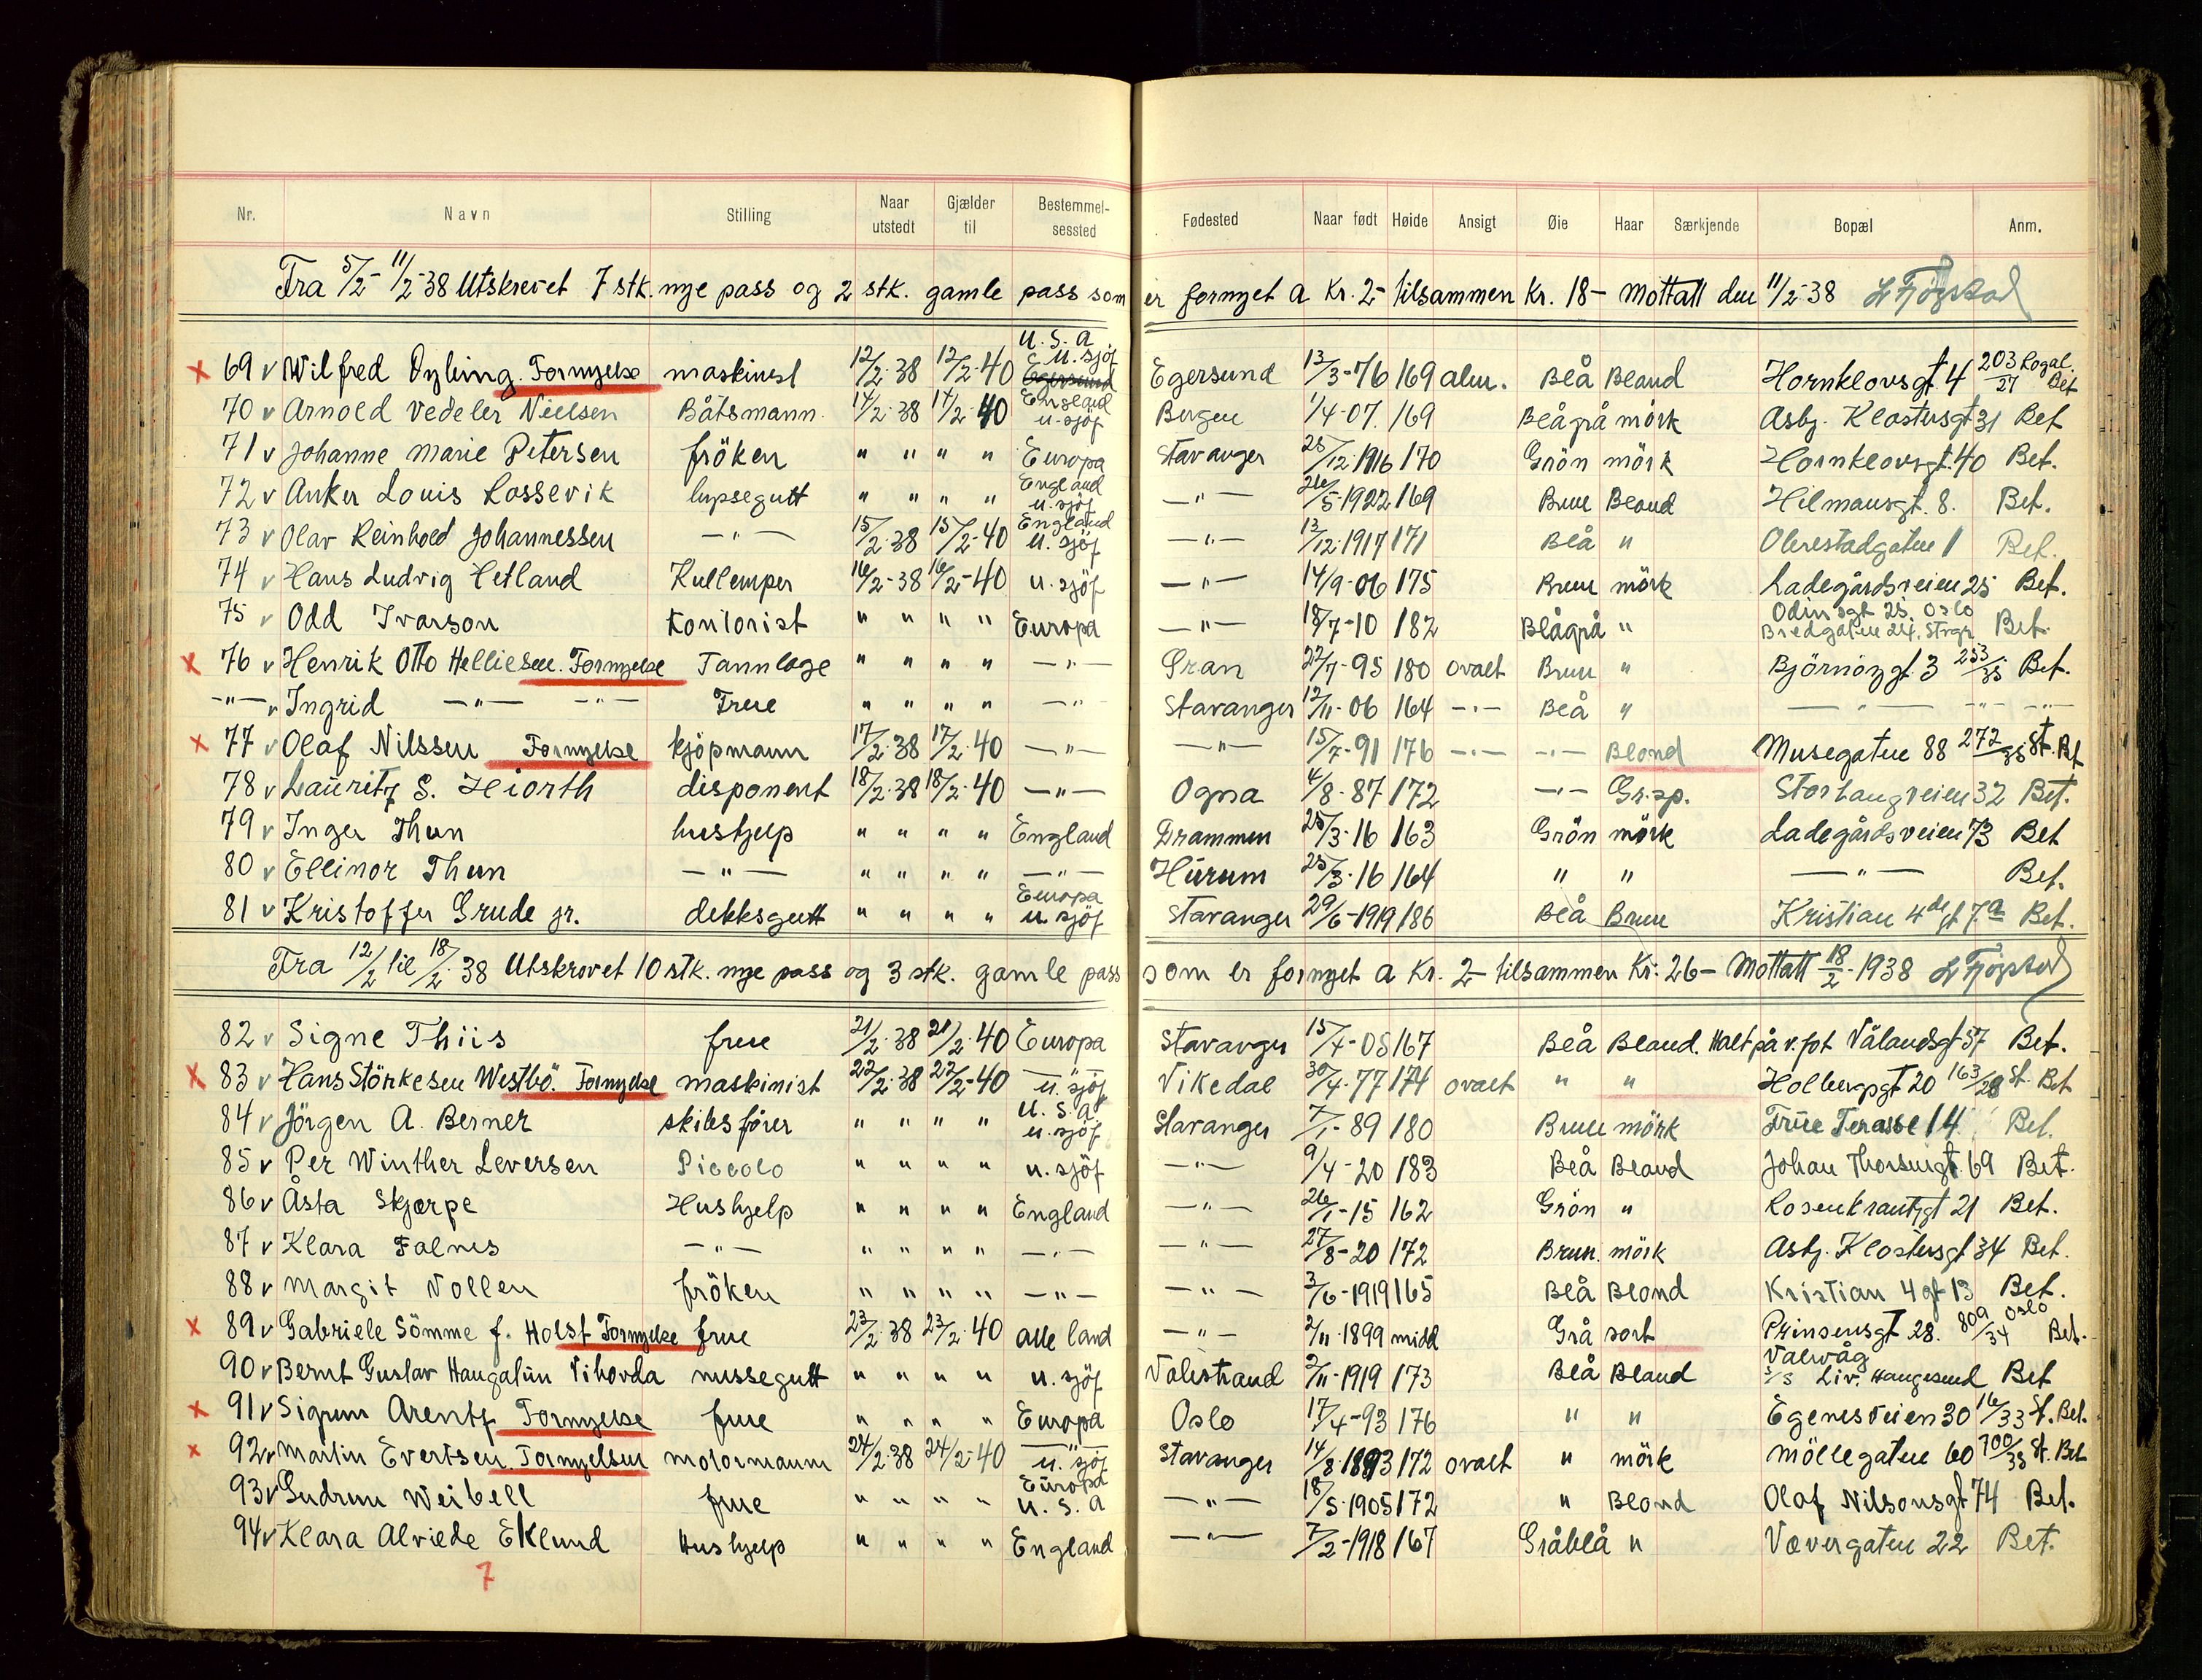 Nr. Navn Stilling Naar utstedt Gjælder til Bestemmelsessted Fødested Naar født Høide Ansigt Øie Haar Særkjende Bopæl Anm.
Fra 5/2- 11/2-38 Utskrevet 7 stk. nye pass og 2 stk. gamle pass som er fornyet a Kr. 2- tilsammen Kr. 18- Mottatt den 11/2-38
x 69 v Wilfred Fornyelse maskinist 12/2-38 12/2-40 U.S.A u. sjöf Egersund 13/3-76 169 alm. Blå Blond Hornklovsgt 4 203/27 Bet
70 v Arnold Vedeler Nielsen Båtsmann 14/2-38 14/2-40 England u. sjöf Bergen 1/4-07. 169 Blågrå mörk Asbj. Klostersgt 31 Bet
71 v Johanne Marie Petersen fröken " " " " Europa Stavanger 25/12-1916 170 Grön mörk Hornklovsgt. 40 Bet.
72 v Anker Louis Lossevik " " " " England u. sjöf —"— 26/5-1922 169 Brun Blond Hilmausgt. 8. Bet.
73 v Olav Reinhold Johannessen —"— 15/2-38 15/2-40 England u. sjöf —"— 13/12-1917 171 Blå " 1 Bet.
74 v Hans Ludvig Hetland Kullemper 16/2-38 16/2-40 u. sjöf —"— 14/9-06 175 Brun mörk Ladegårdsveien 25 Bet.
75 v Odd Ivarson Kontorist " " " " Europa —"— 18/7-10 182 Blågrå " Odinsgt 25. Oslo Bredgaten 24. Stvgr Bet.
x 76 v Henrik Otto Helliesen. Fornyelse Tannlæge " " " " —"— Gran 27/7-95 180 ovalt Brun " Björnöygt. 3 253/35 Bet.
—"— v Ingrid —"— —"— Frue " " " " —"— Stavanger 12/11-06 164 —"— Blå " —"— —"— —"—
x 77 v Olaf Nilssen Fornyelse kjöpmann 17/2-38 17/2-40 —"— —"— 15/7-91 176 —"— —"— Blond Musegaten 88 272/35 St. Bet
78 v Lauritz S. Hiorth disponent 18/2-38 18/2-40 —"— Ogna 4/8-87 172 —"— Gr.sp. Storhaugveien 32 Bet.
79 v Inger Thun hushjelp " " " " England Drammen 25/3-16 163 Grön mörk Ladegårdsveien 73 Bet
80 v Ellinor Thun —"— " " " " —"— Hurum 25/3-16 164 " " —"— Bet.
81 v Kristoffer Grude jr. dekksgutt " " " " Europa u. sjöf Stavanger 29/6-1919 186 Blå Brun Kristian 4de gt 7.a Bet.
Fra 12/2 til 18/2-38 Utskrevet 10 stk. nye pass og 3 stk. gamle pass som er fornyet a Kr. 2- tilsammen Kr. 26- Mottatt 18/2-1938
82 v Signe Thiis frue 21/2-38 21/2-40 Europa Stavanger 15/7-05 167 Blå Blond. Halt på v. fot Vålandsgt 57 Bet.
x 83 v Hans Störkesen Westbö. Fornyelse maskinist 22/2-38 22/2-40 —"— u. sjöf Vikedal 30/4-77 174 ovalt " " Holbergsgt 20 163/28 St. Bet
84 v Jörgen A. Berner skibsförer " " " " U.S.A u. sjöf Stavanger 7/1-89 180 Brun mörk Frue Terasse 14 Bet.
85 v Per Winther Leversen Piccolo " " " " u. sjöf —"— 9/4-20 183 Blå Blond Johan Thorsensgt. 69 Bet.
86 v Åsta Skjørpe Hushjelp " " " " England —"— 26/1-15 162 Grön " Rosenkrantzgt 21 Bet.
87 v Klara Falnes —"— " " " " —"— —"— 27/8-20 172 Brun. mörk Asbj. Klostersgt 34 Bet.
88 v Margit Vollen fröken " " " " —"— —"— 3/6-1919 165 Blå Blond Kristian 4 gt 13 Bet.
x 89 v Gabriele Sömme f. Holst Fornyelse frue 23/2-38 23/2-40 alle land —"— 2/11-1899 midd Grå sort Prinsensgt 28. 809/34 Oslo Bet.
90 v Bernt Gustav Vihovda messegutt " " " " u. sjöf Valestrand 2/11-1919 173 Blå Blond Valevåg s/s Liv. Haugesund Bet
x 91 v Sigrun Arentz Fornyelse frue " " " " Europa Oslo 17/4-93 176 " " Egenesveien 30 16/33 St. Bet.
x 92 v Martin Evertsen. Fornyelsen motormann 24/2-38 24/2-40 —"— u. sjöf Stavanger 14/8-1893 172 ovalt " mörk Möllegaten 60 700/35 St. Bet
93 v Gudrun Weibell frue " " " " Europa U.S.A —"— 18/5-1905 172 " Blond Olaf Nilsonsgt 74 Bet.
94 v Klara Alviede Eklund Hushjelp " " " " England —"— 7/2-1918 167 Gråblå " Vævergaten 22 Bet.
7